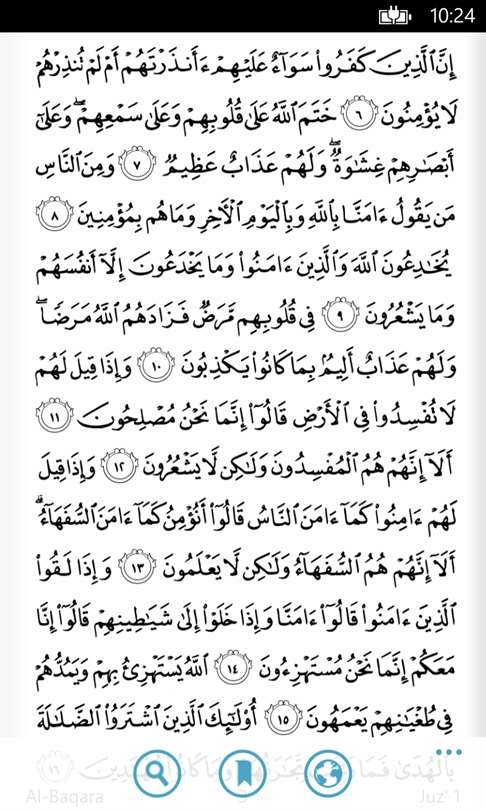 10:24
إِنَّ ٱلَّذِينَ كَفَرُوا۟ سَوَآءٌ عَلَيْهِمْ ءَأَنذَرْتَهُمْ أَمْ لَمْ تُنذِرْهُمْ
لَا يُؤْمِنُونَ ٦ خَتَمَ ٱللَّهُ عَلَىٰ قُلُوبِهِمْ وَعَلَىٰ سَمْعِهِمْ ۖ وَعَلَىٰٓ
أَبْصَٰرِهِمْ غِشَٰوَةٌ ۖ وَلَهُمْ عَذَابٌ عَظِيمٌ ٧ وَمِنَ ٱلنَّاسِ
مَن يَقُولُ ءَامَنَّا بِٱللَّهِ وَبِٱلْيَوْمِ ٱلْءَاخِرِ وَمَا هُم بِمُؤْمِنِينَ ٨
يُخَٰدِعُونَ ٱللَّهَ وَٱلَّذِينَ ءَامَنُوا۟ وَمَا يَخْدَعُونَ إِلَّآ أَنفُسَهُمْ
وَمَا يَشْعُرُونَ ٩ فِى قُلُوبِهِم مَّرَضٌ فَزَادَهُمُ ٱللَّهُ مَرَضًا ۖ
وَلَهُمْ عَذَابٌ أَلِيمٌۢ بِمَا كَانُوا۟ يَكْذِبُونَ ١٠ وَإِذَا قِيلَ لَهُمْ
لَا تُفْسِدُوا۟ فِى ٱلْأَرْضِ قَالُوٓا۟ إِنَّمَا نَحْنُ مُصْلِحُونَ ١١
أَلَآ إِنَّهُمْ هُمُ ٱلْمُفْسِدُونَ وَلَٰكِن لَّا يَشْعُرُونَ ١٢ وَإِذَا قِيلَ
لَهُمْ ءَامِنُوا۟ كَمَآ ءَامَنَ ٱلنَّاسُ قَالُوٓا۟ أَنُؤْمِنُ كَمَآ ءَامَنَ ٱلسُّفَهَآءُ ۗ
أَلَآ إِنَّهُمْ هُمُ ٱلسُّفَهَآءُ وَلَٰكِن لَّا يَعْلَمُونَ ١٣ وَإِذَا لَقُوا۟
ٱلَّذِينَ ءَامَنُوا۟ قَالُوٓا۟ ءَامَنَّا وَإِذَا خَلَوْا۟ إِلَىٰ شَيَٰطِينِهِمْ قَالُوٓا۟ إِنَّا
مَعَكُمْ إِنَّمَا نَحْنُ مُسْتَهْزِءُونَ ١٤ ٱللَّهُ يَسْتَهْزِئُ بِهِمْ وَيَمُدُّهُمْ
فِى طُغْيَٰنِهِمْ يَعْمَهُونَ ١٥ أُو۟لَٰٓئِكَ ٱلَّذِينَ ٱشْتَرَوُا۟ ٱلضَّلَٰلَةَ
بِٱلْهُدَىٰ
Al-Baqara Juz' 1